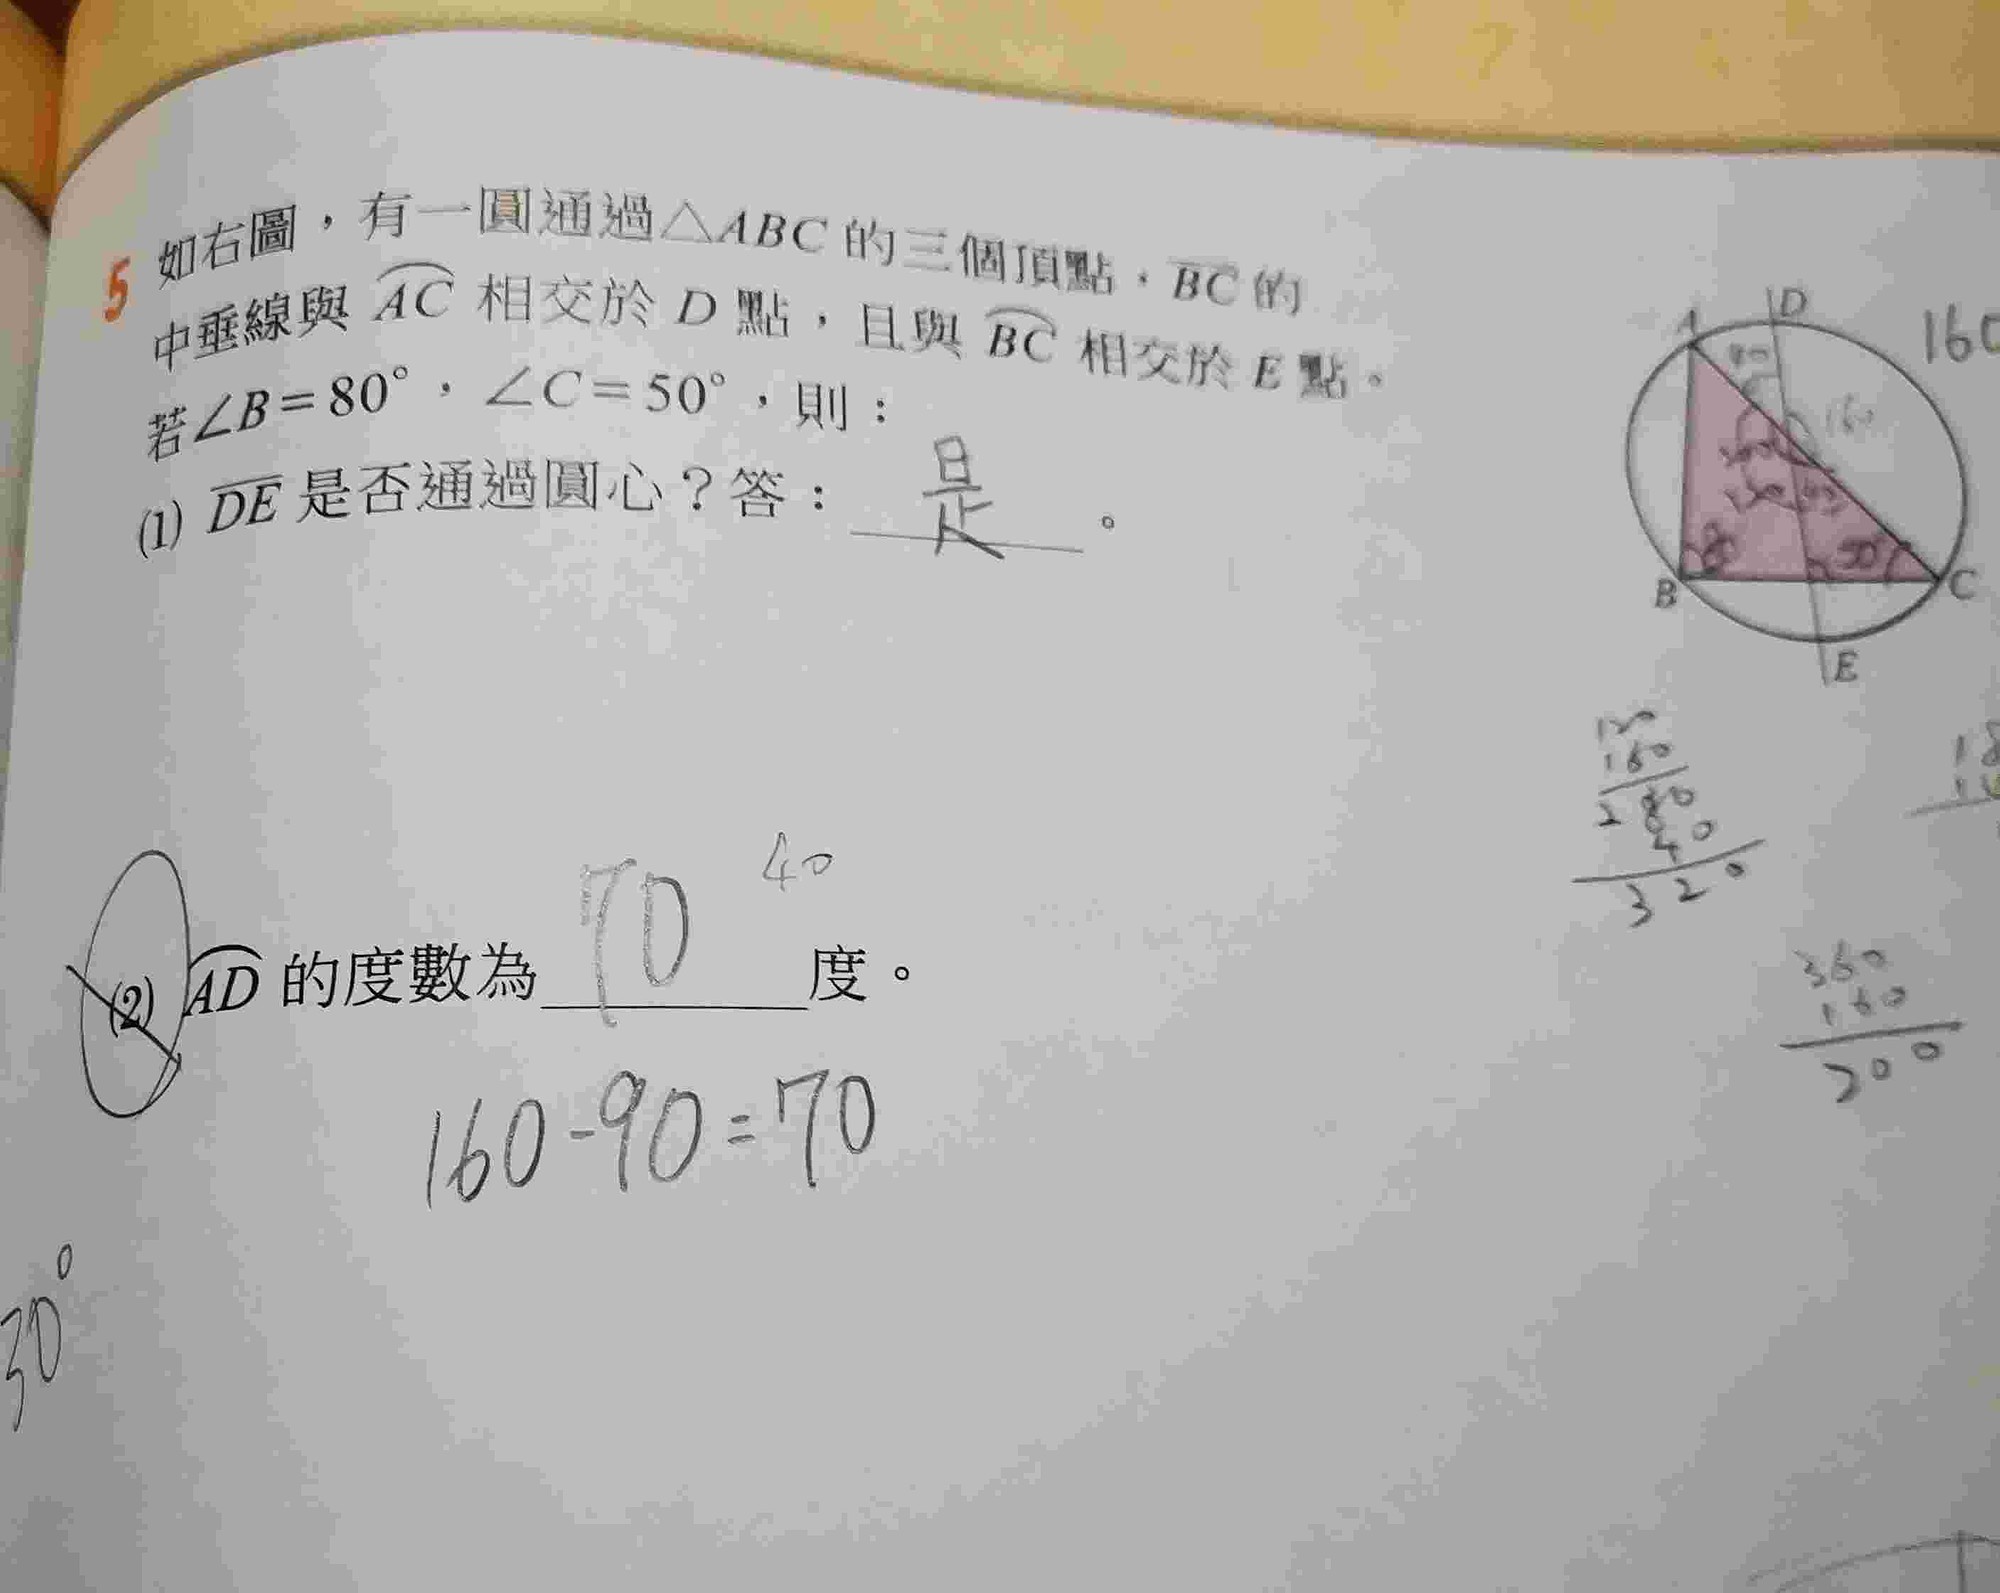 5 如右圖，有一圓通過△ABC 的三個頂點，BC 的
中垂線與 AC 相交於 D 點，且與 BC 相交於 E 點。
若∠B=80°，∠C=50°，則：
(1) DE 是否通過圓心？答：是。
A D
160
40
160
80
50
B C
E
160
280
40
320
18
70 40
(2) AD 的度數為 度。
360
160
200
160-90=70
30°